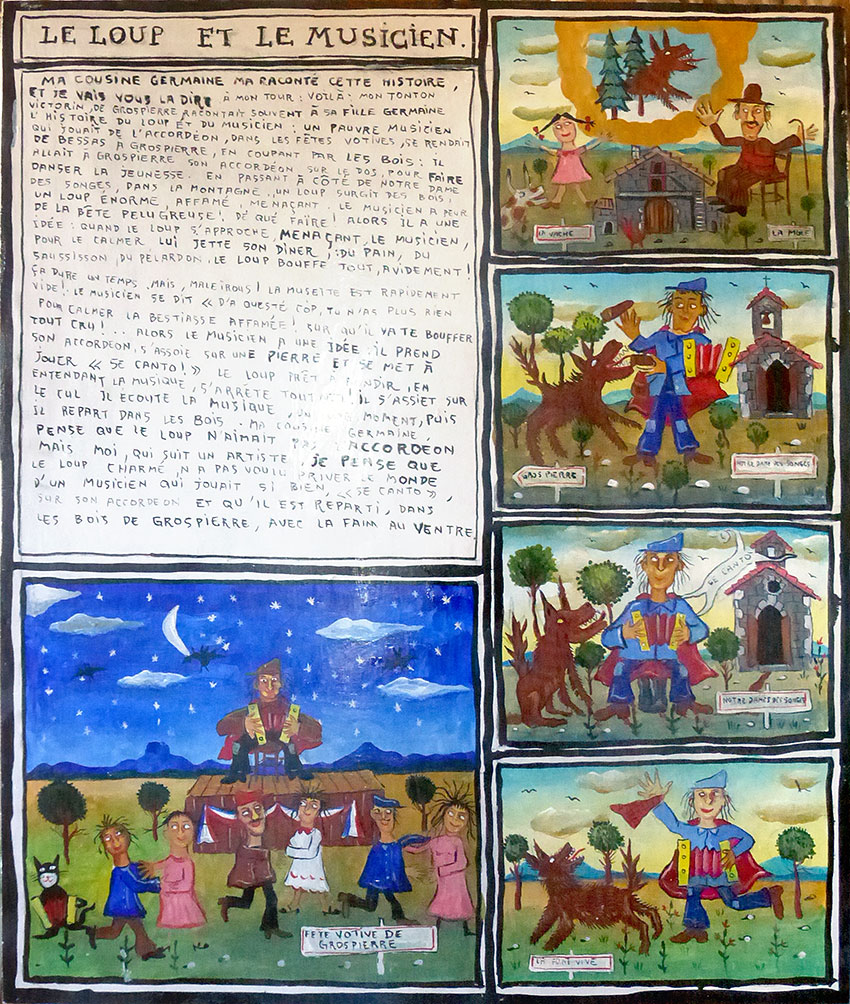 LE LOUP ET LE MUSICIEN.
MA COUSINE GERMAINE MA RACONTÉ CETTE HISTOIRE,
ET JE VAIS VOUS LA DIRE À MON TOUR : VOILÀ : MON TONTON
VICTORIN, DE GROSPIERRE RACONTAIT SOUVENT À SA FILLE GERMAINE
L'HISTOIRE DU LOUP ET DU MUSICIEN : UN PAUVRE MUSICIEN
QUI JOUAIT DE L'ACCORDÉON, DANS LES FÊTES VOTIVES, SE RENDAIT
DE BESSAS À GROSPIERRE, EN COUPANT PAR LES BOIS : IL
ALLAIT À GROSPIERRE SON ACCORDÉON SUR LE DOS, POUR FAIRE
DANSER LA JEUNESSE. EN PASSANT À CÔTÉ DE NOTRE DAME
DES SONGES, DANS LA MONTAGNE, UN LOUP SURGIT DES BOIS,
UN LOUP ÉNORME, AFFAMÉ, MENAÇANT. LE MUSICIEN A PEUR
DE LA BÊTE PELUGREUSE! DÉ QUÉ FAIRE! ALORS IL A UNE
IDÉE : QUAND LE LOUP S'APPROCHE, MENAÇANT, LE MUSICIEN,
POUR LE CALMER, LUI JETTE SON DÎNER, : DU PAIN, DU
SAUSSISSON, DU PELARDON, LE LOUP BOUFFE TOUT, AVIDEMENT!
ÇA DURE UN TEMPS, MAIS, MALEIROUS! LA MUSETTE EST RAPIDEMENT
VIDE! LE MUSICIEN SE DIT « D'A QUESTÉ COP, TU N'AS PLUS RIEN
POUR CALMER LA BESTIASSE AFFAMÉE! SUR QU'IL VA TE BOUFFER
TOUT CRU!... ALORS LE MUSICIEN A UNE IDÉE : IL PREND
SON ACCORDÉON, S'ASSOIE SUR UNE PIERRE ET SE MET À
JOUER « SE CANTO! » LE LOUP PRÊT À BONDIR, EN
ENTENDANT LA MUSIQUE, S'ARRÊTE TOUT NET! IL S'ASSIET SUR
LE CUL IL ÉCOUTE LA MUSIQUE, UN MOMENT, PUIS
IL REPART DANS LES BOIS. MA COUSINE GERMAINE,
PENSE QUE LE LOUP N'AIMAIT PAS L'ACCORDEON
MAIS MOI, QUI SUIT UN ARTISTE, JE PENSE QUE
LE LOUP CHARMÉ, N'A PAS VOULU PRIVER LE MONDE
D'UN MUSICIEN QUI JOUAIT SI BIEN, « SE CANTO »,
SUR SON ACCORDEON ET QU'IL EST REPARTI, DANS
LES BOIS DE GROSPIERRE, AVEC LA FAIM AU VENTRE.
LA VACHE
LA MULE
GROS PIERRE
NOTRE DAME DES SONGES
SE CANTO
NOTRE DAMES DES SONGES
LA FONT VIVE
FÊTE VOTIVE DE
GROSPIERRE